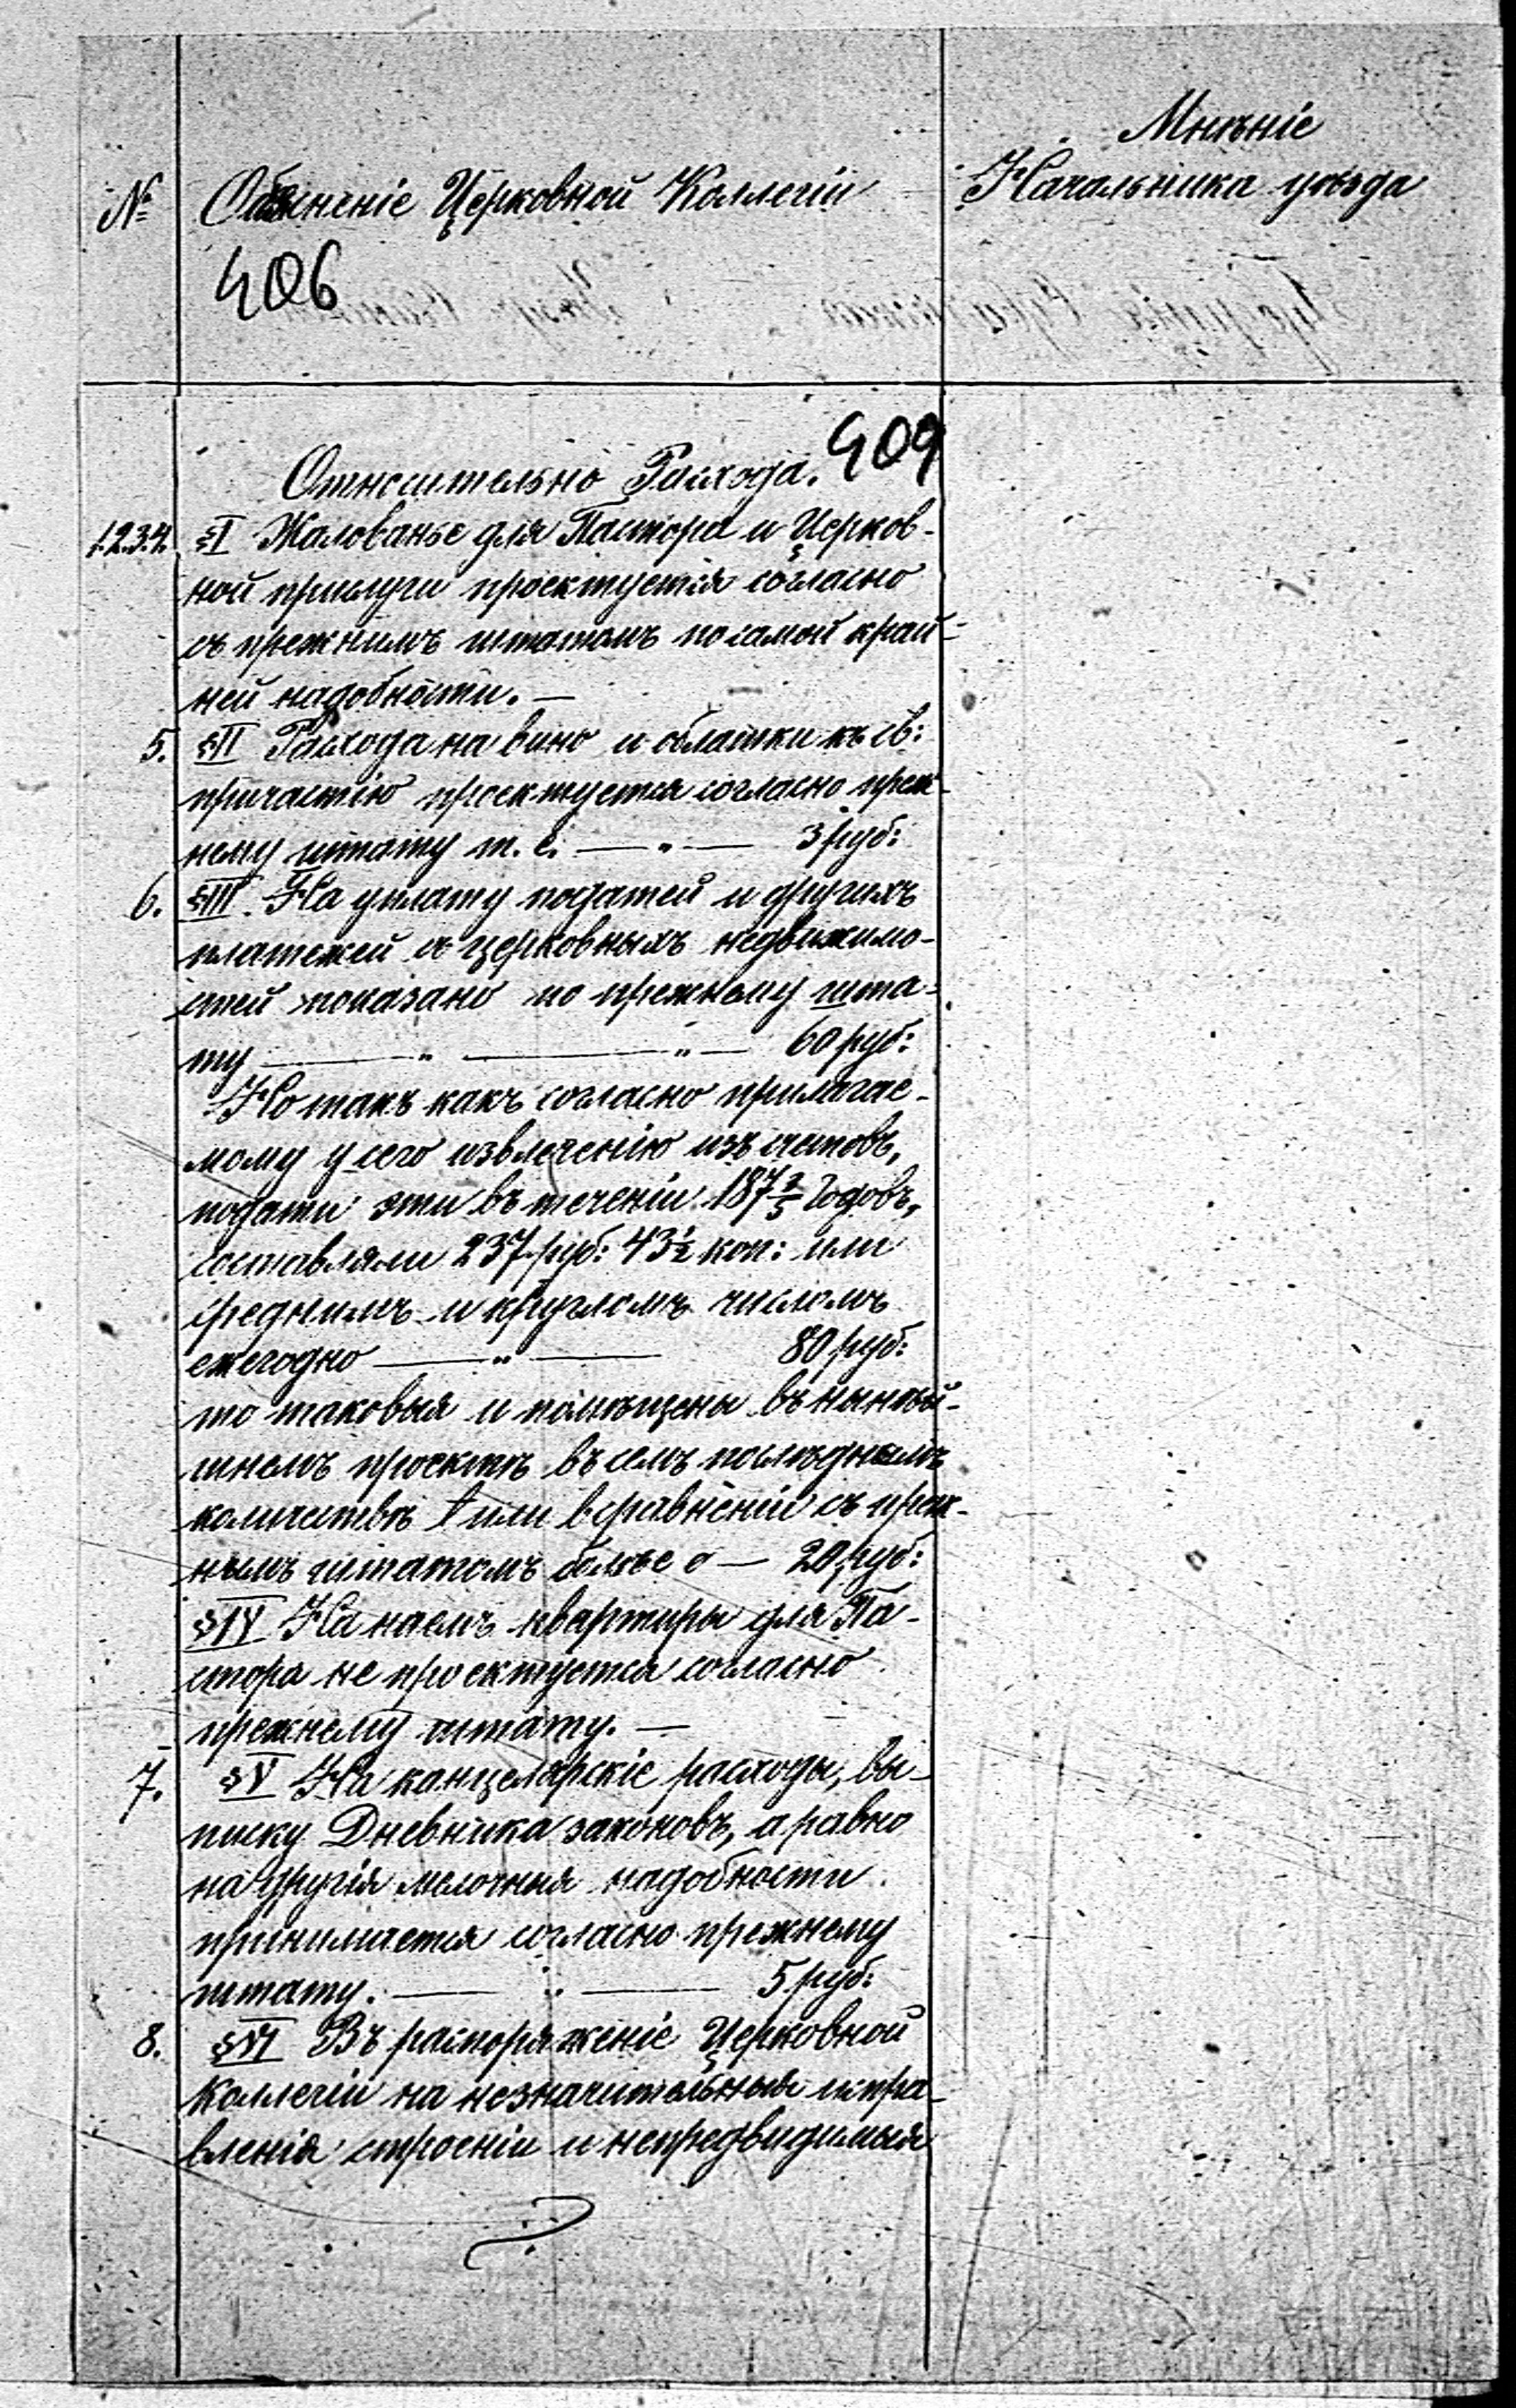 Мнѣніе
Начальника уѣзда
№ Объясненіе Церковной Коллегіи
406
409
Относительно Расхода.
1.2.3.4. §I Жалованье для Пастора и Церков-
ной прислуги проектуется согласно
съ прежнимъ штатомъ по самой край-
ней надобности. —
5. §II Расхода на вино и облатки къ св:
причастію проектуется согласно преж-
нему штату т. е. — „ — 3 руб:
6. §III. На уплату податей и другихъ
платежей съ церковныхъ недвижимо-
стей показано по прежнему шта-
ту — „ — „ — 60 руб:
Но такъ какъ согласно прилагае-
мому у сего извлеченію изъ счетовъ,
подати эти въ теченіи 187 3/5 Годовъ,
составляли 237 руб: 43½ коп: или
среднимъ и круглымъ числомъ
ежегодно — „ — 80 руб:
то таковыя и помѣщены въ нынѣй-
шнемъ проектѣ въ семъ послѣднемъ
количествѣ или въ сравненіи съ преж-
нымъ штатомъ болѣе о — 20 руб:
§IV На наемъ квартиры для Па-
стора не проектуется согласно
прежнему штату. —
7. §V На канцелярскіе расходы, вы-
писку Дневника законовъ, а равно
на другія мелочныя надобности
принимается согласно прежнему
штату. — „ — 5 руб:
8. §VI Въ распоряженіе Церковной
Коллегіи на незначительныя испра-
вленія строеніи и непредвидимыя